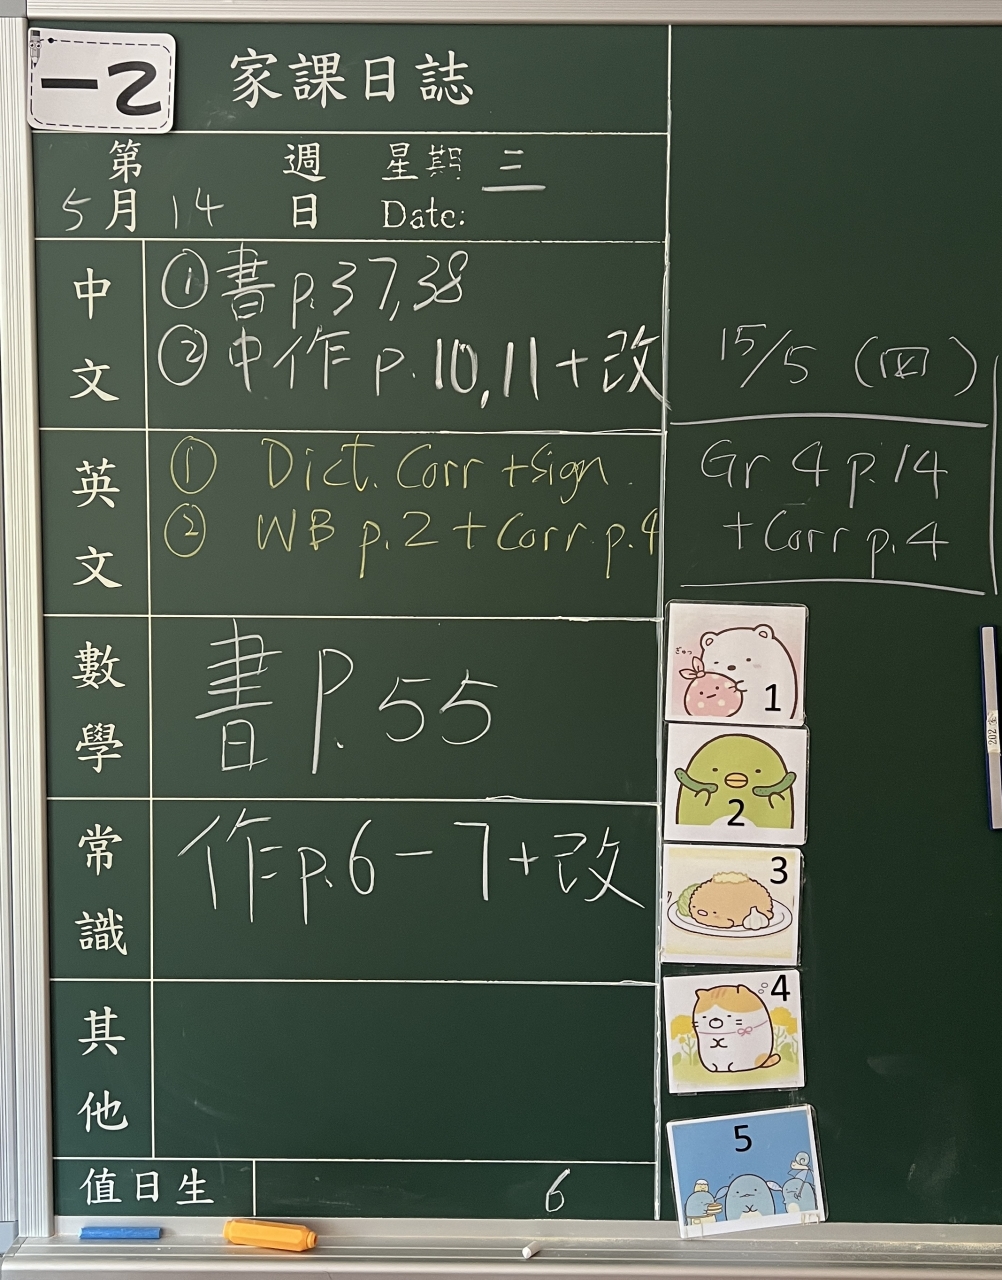 一2
家課日誌
第 週 星期 三
5月14日 Date:
中文
①書p.37,38
②中作 p.10,11+改
英文
① Dict. Corr +sign.
② WB p.2 + Corr. p.4
數學
書 p.55
常識
作p.6-7+改
其他
值日生 6
15/5 (四)
Gr 4 p.14
+ Corr p.4
ぎゅっ
1
2
3
4
5